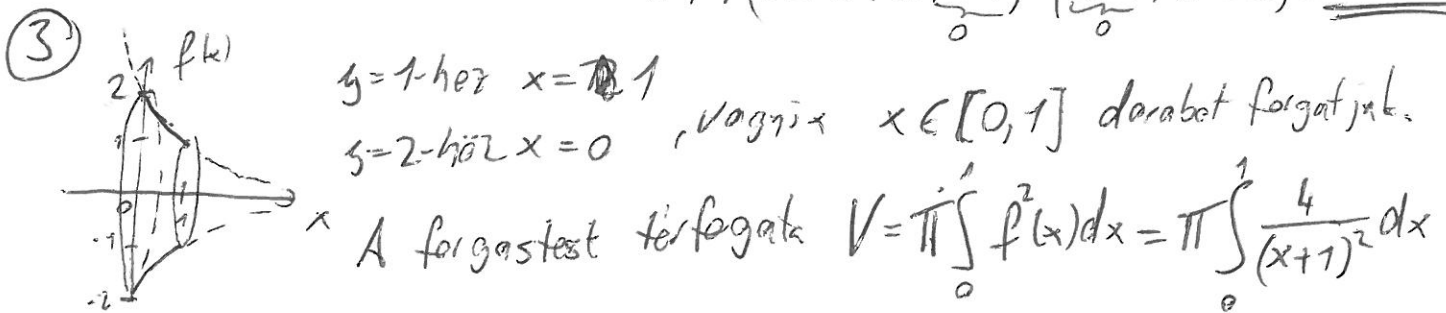 0 0
③
f(x)
2
1
0
1
-1
-2
x
y=1-hez x=1
y=2-höz x=0 , vagyis x∈[0,1] darabot forgatjuk.
A forgástest térfogata V=π∫₀¹ f²(x)dx = π∫₀¹ 4/(x+1)² dx